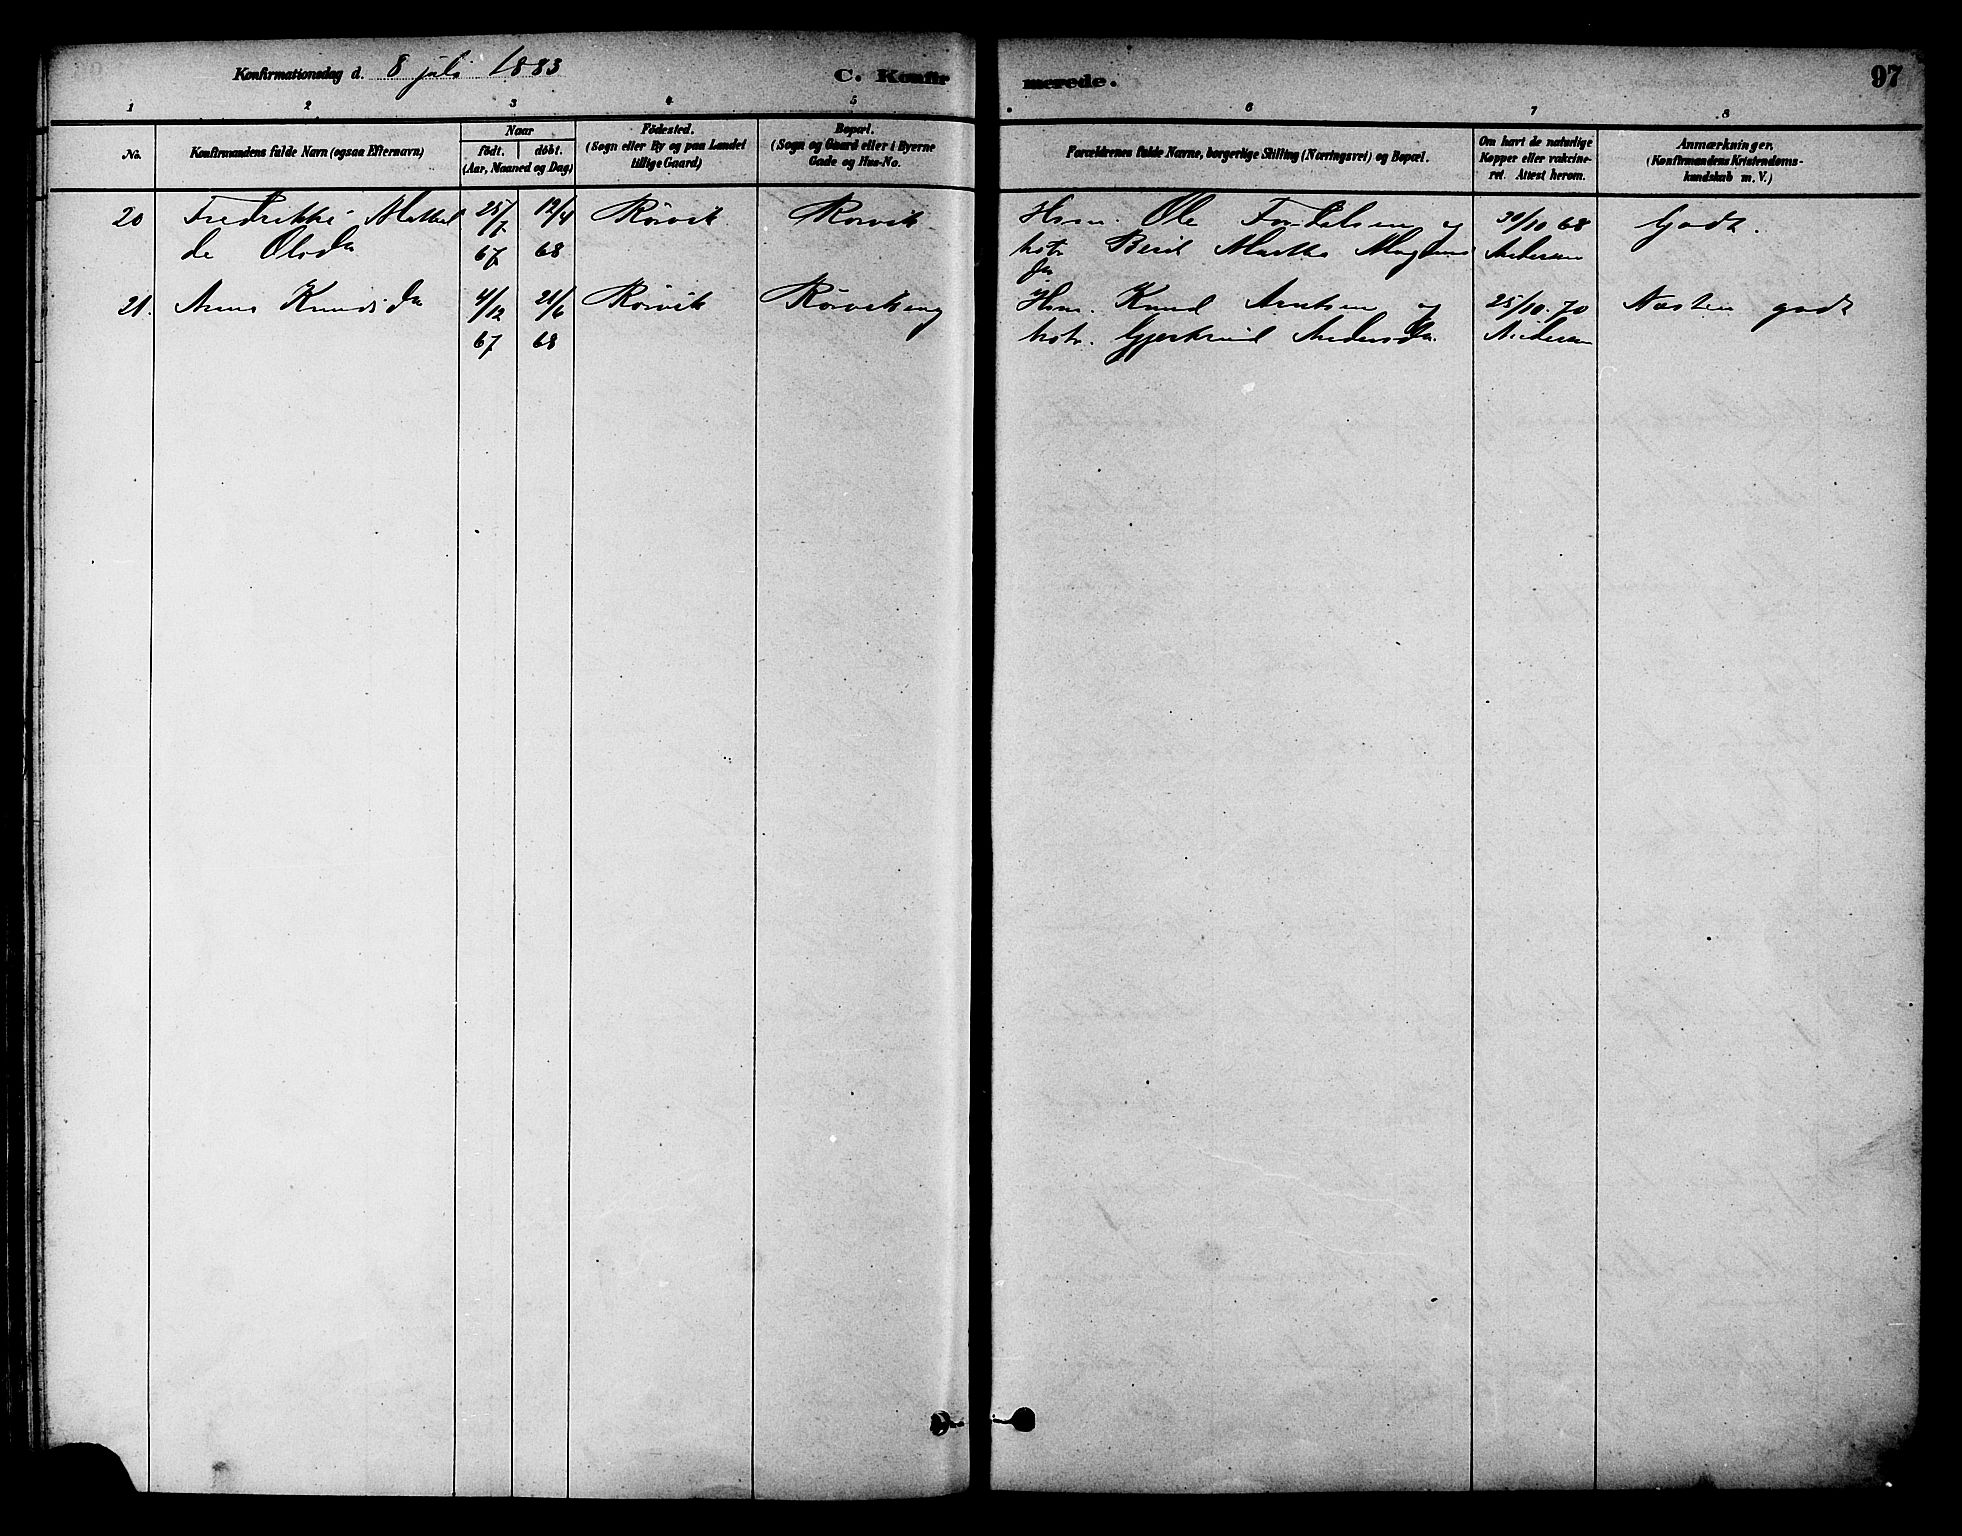 Konfirmationsdag d. 8 juli 1883
C. Konfir
merede.
97
1 2 3 4 5 6 7 8
No.
Konfirmandens fulde Navn (ogsaa Efternavn)
Naar
födt. döbt.
(Aar, Maaned og Dag)
Födested.
(Sogn eller By og paa Landet
tillige Gaard)
Bopæl.
(Sogn og Gaard eller i Byerne
Gade og Hus-No.
Forældrenes fulde Navne, borgerlige Stilling (Næringsvei) og Bopæl.
Om havt de naturlige
Kopper eller vakcine-
ret. Attest herom.
Anmærkninger.
(Konfirmandens Kristendoms-
kundskab m. V.)
20 Fredrikke Mathil 25/7 19/4 Rörvik Rörvik Hsm. Ole og 30/10 68 Godt.
de Olsdr 67 68 hstr Berit Martha Magnus Andersen
dr
21. Anne Knudsdr 4/12 21/6 Rörvik Rörvikeng Hsm. Knud Arntsen og 25/10 70 Næsten godt
67 68 hstr. Gjertrud Andersdr. Andersen